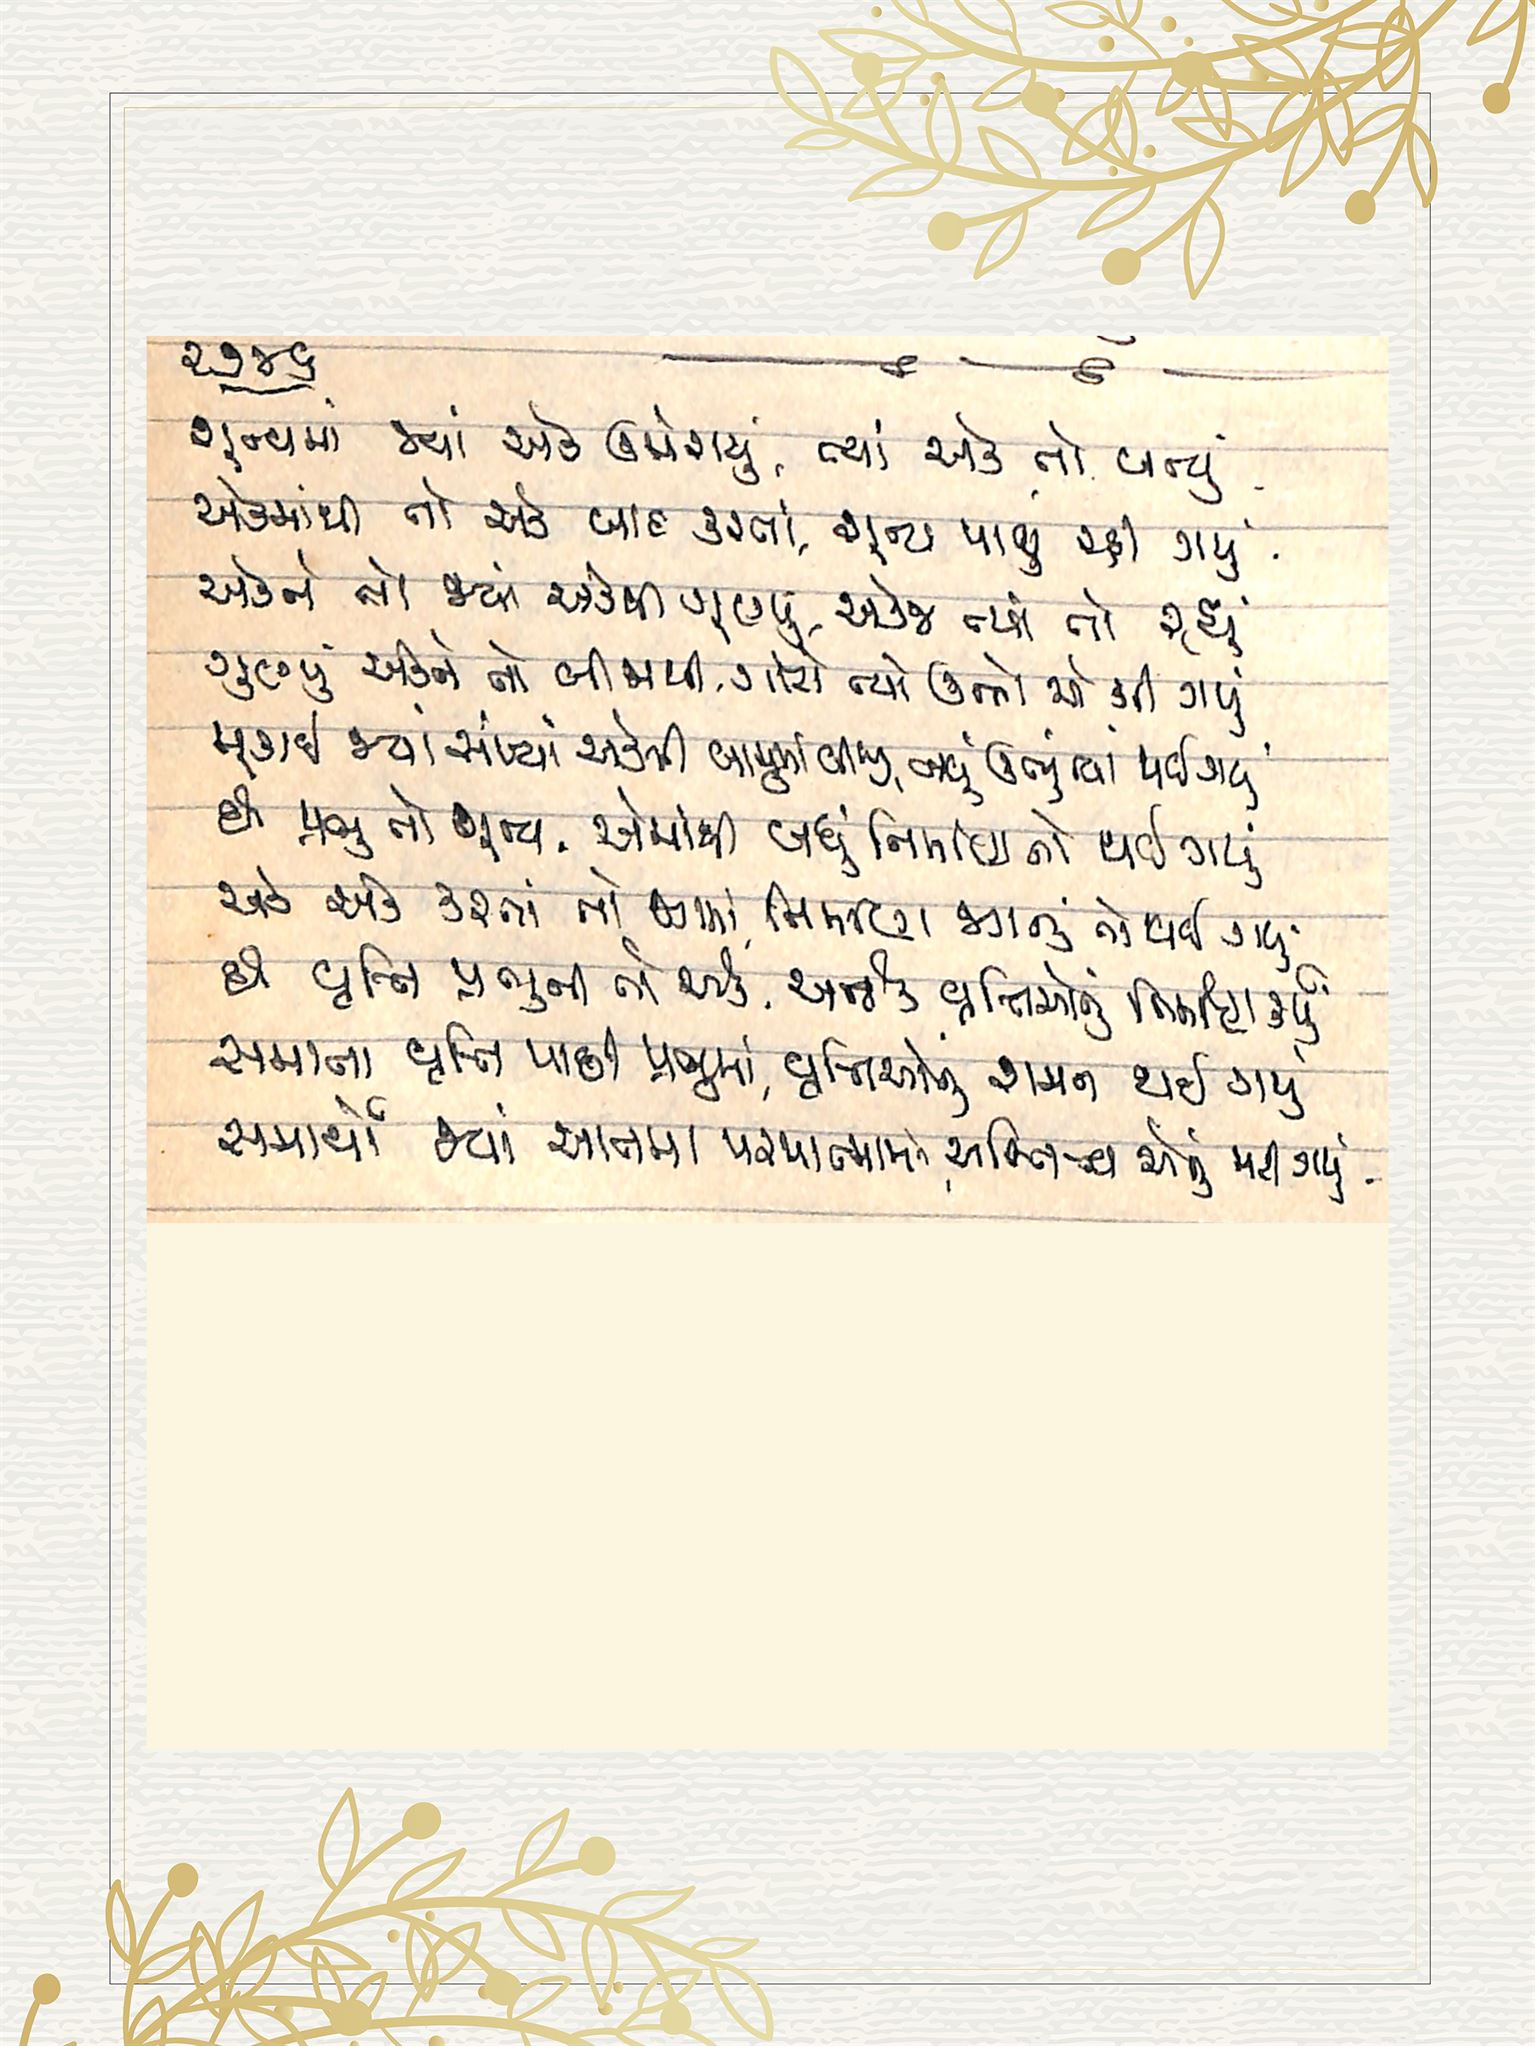 ૨૭૪૬
શૂન્યમાં જ્યાં એક ઉમેરાયું, ત્યાં એક તો બન્યું
એકમાંથી તો એક બાદ કરતાં, શૂન્ય પાછું રહી ગયું
એકને તો જ્યાં એકથી ગૂણ્યું, એકજ ત્યાં તો રહ્યું
ગુણ્યું એકને તો બીજાથી, ગોટો ત્યાં ઉભો એ કરી ગયું
મૂકાઈ જ્યાં સંખ્યા એકની બાજુમાં બીજી, બધું ઉંધું ત્યાં થઈ ગયું
છે પ્રભુ તો શૂન્ય, એમાંથી બધું નિર્માણ તો થઈ ગયું
એક એક કરતાં તો જીવમાં, નિર્માણ જગનું તો થઈ ગયું
છે વૃત્તિ પ્રભુની તો એક, અનેક વૃત્તિઓનું નિર્માણ કર્યું
સમાતા વૃત્તિ પાછી પ્રભુમાં, વૃત્તિઓનું શમન થઈ ગયું
સમાયો જ્યાં આતમા પરમાત્મામાં, અસ્તિત્વ એનું મટી ગયું.